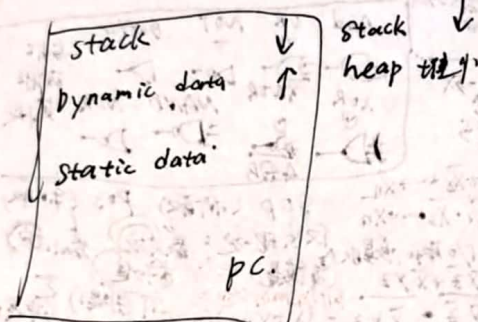 stack ↓
Dynamic data ↑
static data
pc.
stack ↓
heap